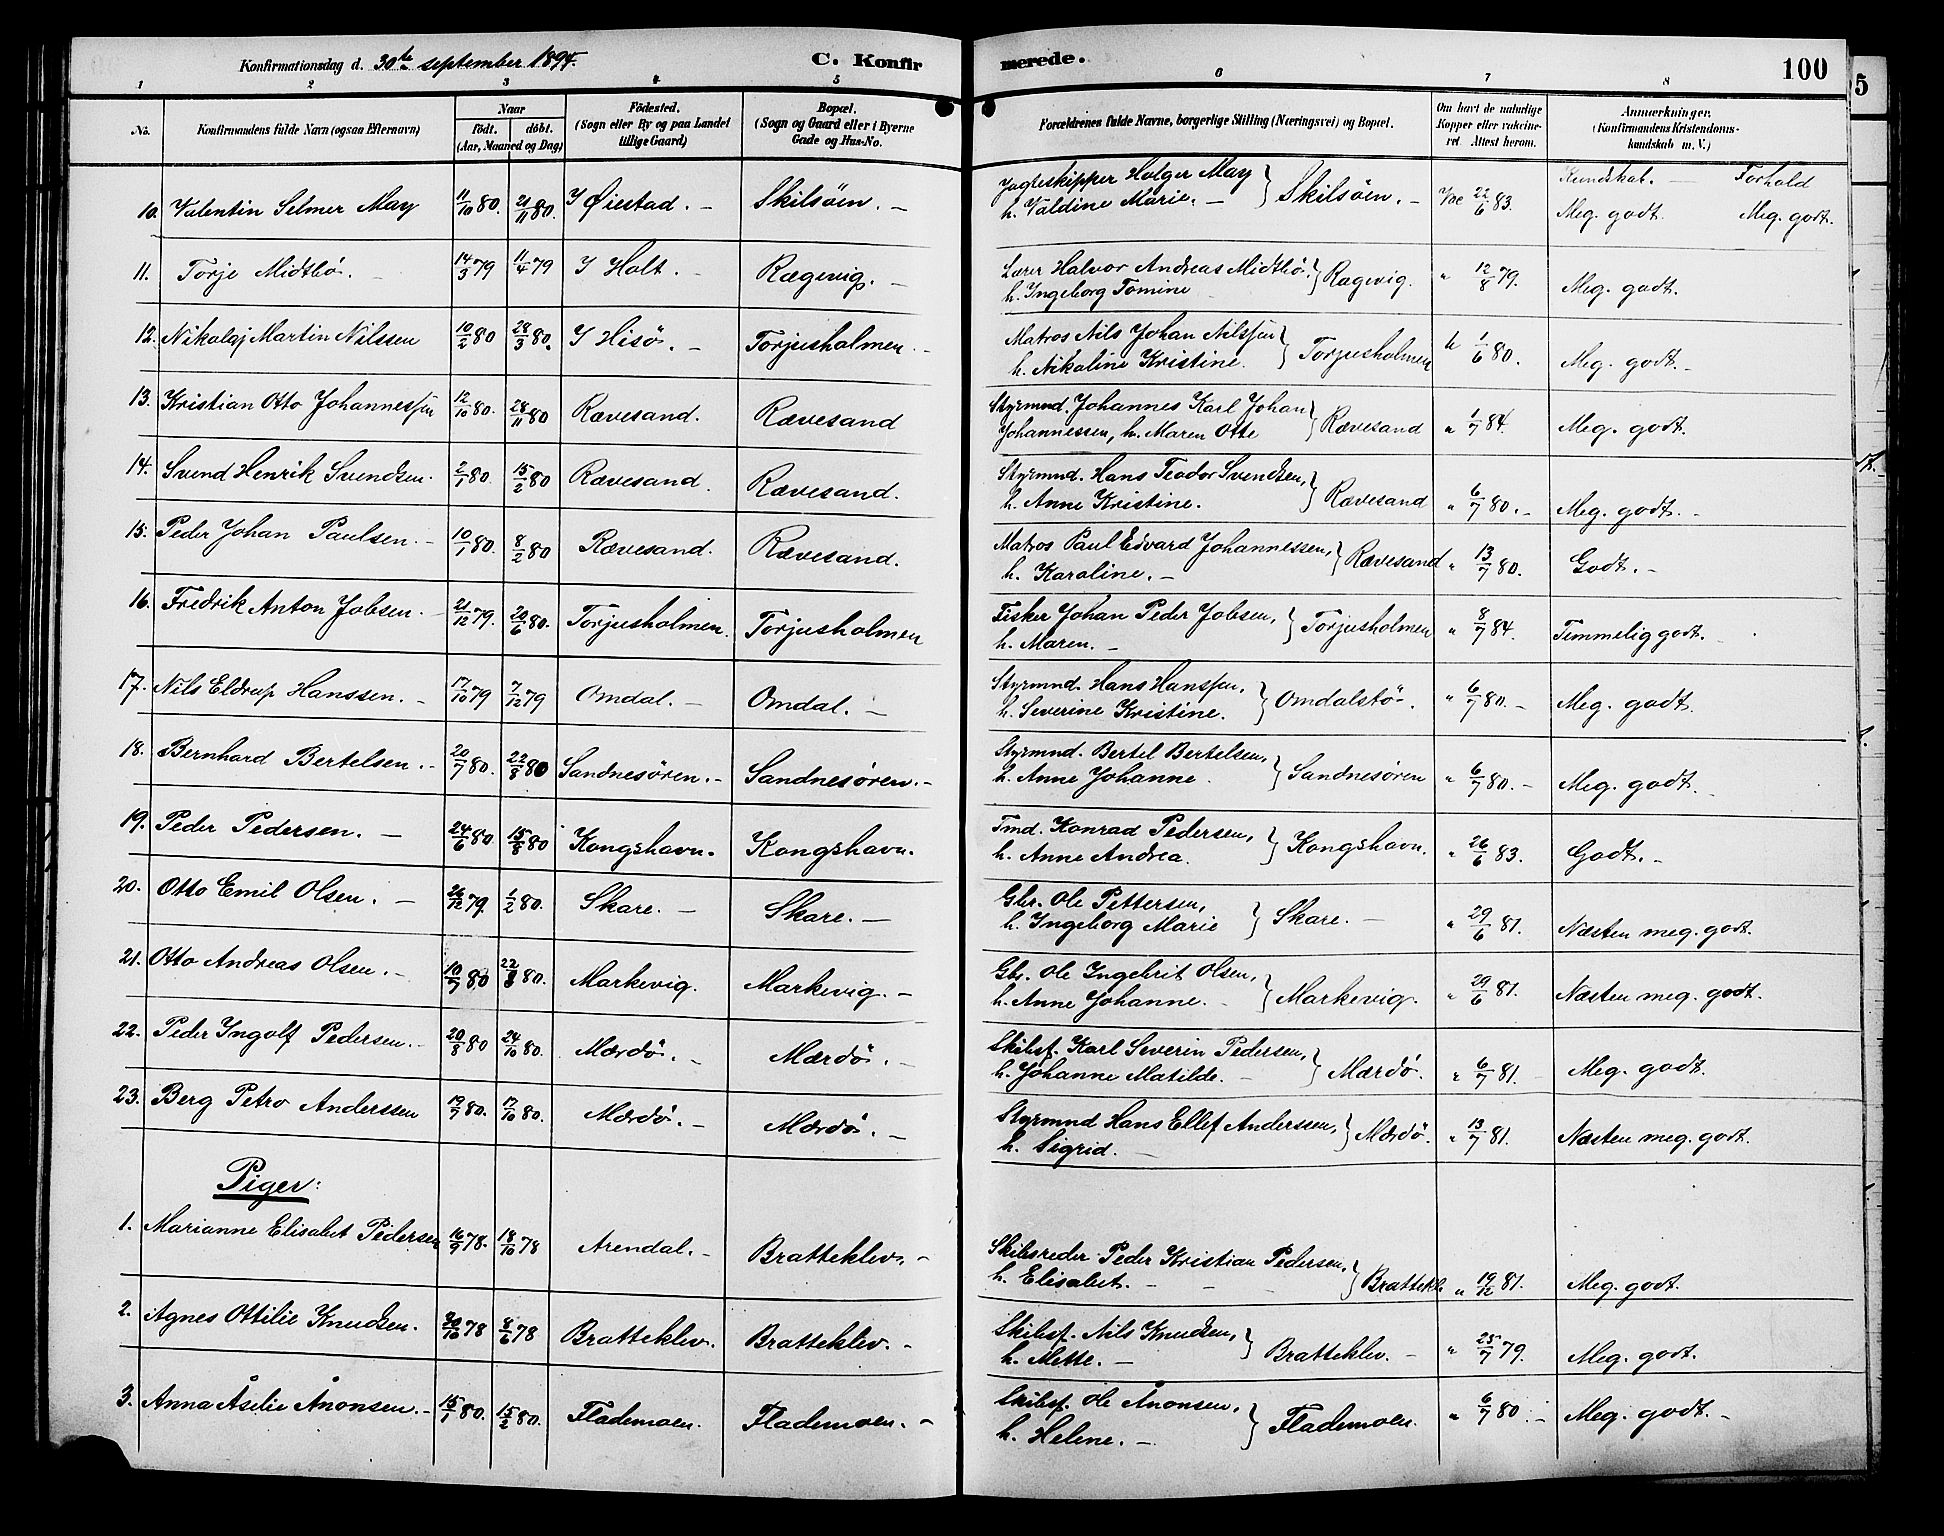 Konfirmationsdag d. 30te september 1894. C. Konfirmerede. 100
1 2 3 4 5 6 7 8
No. Konfirmandens fulde Navn (ogsaa Efternavn) Naar födt. döbt. (Aar, Maaned og Dag) Födested. (Sogn eller By og paa Landet tillige Gaard) Bopæl. (Sogn og Gaard eller i Byerne Gade og Hus-No. Forældrenes fulde Navne, borgerlige Stilling (Næringsvei) og Bopæl. Om havt de naturlige Kopper eller vakcineret. Attest herom. Anmærkninger. (Konfirmandens Kristendomskundskab m. V.)
Kundskab. — Forhold
10. Valentin Selmer May 11/10 80. 21/11 80. I Øiestad. — Skilsöen. — Jagteskipper Holger May h. Valdine Marie. — } Skilsöen. — Vac 22/6 83. Meg. godt. Meg. godt.
11. Torje Midtbö. 14/3 79 11/4 79 I Holt. — Rægevig. — Lærer Halvor Andreas Midtbö. h. Ingeborg Tomine } Rægevig. " 12/8 79. Meg. godt.
12. Nikolaj Martin Nilssen 10/2 80 28/3 80. I Hisö. — Torjusholmen. — Matros Nils Johan Nilssen h. Nikoline Kristine. } Torjusholmen " 1/6 80. Meg. godt. —
13. Kristian Otto Johannessen 12/10 80. 28/11 80 Rævesand. Rævesand Styrmnd. Johannes Karl Johan Johannessen, h. Maren Otte } Rævesand " 1/7 84. Meg. godt.
14. Svend Henrik Svendsen. 2/1 80. 15/2 80 Rævesand. Rævesand. Styrmnd. Hans Teodor Svendsen, h. Anne Kristine. } Rævesand " 6/7 80. — Meg. godt. —
15. Peder Johan Paulsen. — 10/1 80. 8/2 80 Rævesand. Rævesand. Matros Paul Edvard Johannessen, h. Karoline. — } Rævesand " 13/7 80. Godt. —
16. Fredrik Anton Jobsen. — 21/12 79. 20/6 80. Torjusholmen. Torjusholmen Fisker Johan Peder Jobsen, h. Maren. — } Torjusholmen " 8/7 84. Temmelig godt. —
17. Nils Eldrup Hanssen. — 17/10 79 7/12 79 Omdal. — Omdal. — Styrmnd. Hans Hanssen, h. Severine Kristine. } Omdalstö. " 6/7 80. — Meg. godt.
18. Bernhard Bertelsen. — 20/7 80. 22/8 80 Sandnesören. — Sandnesören. — Styrmnd. Bertel Bertelsen, h. Anne Johanne. } Sandnesören " 6/7 80. — Meg. godt. —
19. Peder Pedersen. — 24/6 80. 15/8 80 Kongshavn. Kongshavn. Tmd. Konrad Pedersen, h. Anne Andrea. } Kongshavn. " 26/6 83. Godt. —
20. Otto Emil Olsen. — 26/12 79. 1/2 80. Skare. — Skare. — Gbr. Ole Pettersen, h. Ingeborg Marie } Skare. — " 29/6 81. Næsten meg. godt.
21. Otto Andreas Olsen. — 10/7 80 22/8 80. Markevig. Markevig. — Gbr. Ole Ingebrit Olsen, h. Anne Johanne. — } Markevig. " 29/6 81. Næsten meg. godt.
22. Peder Ingolf Pedersen. — 20/8 80 24/10 80. Mærdö. — Mærdö. — Skibsf. Karl Severin Pedersen, h. Johanne Matilde. — } Mærdö. " 6/7 81. Meg. godt.
23. Berg Petro Anderssen 19/7 80. 17/10 80. Mærdö. — Mærdö. — Styrmnd Hans Ellef Anderssen, h. Sigrid. — } Mærdö. " 13/7 81. Næsten meg. godt.
Piger:
1. Marianne Elisabet Pedersen 16/9 78. 18/10 78 Arendal. — Bratteklev. — Skibsreder Peder Kristian Pedersen, h. Elisabet. — } Bratteklev " 19/12 81. Meg. godt.
2. Agnes Ottilie Knudsen. 30/10 78 8/6 78 Bratteklev. Bratteklev. — Skibsf. Nils Knudsen, h. Mette. — } Bratteklev. — " 25/7 79. Meg. godt.
3. Anna Åselie Ånonsen. — 15/1 80. 15/2 80. Flademoen. Flademoen. — Skibsf. Ole Ånonsen, h. Helene. — } Flademoen. " 6/7 80. — Meg. godt. —